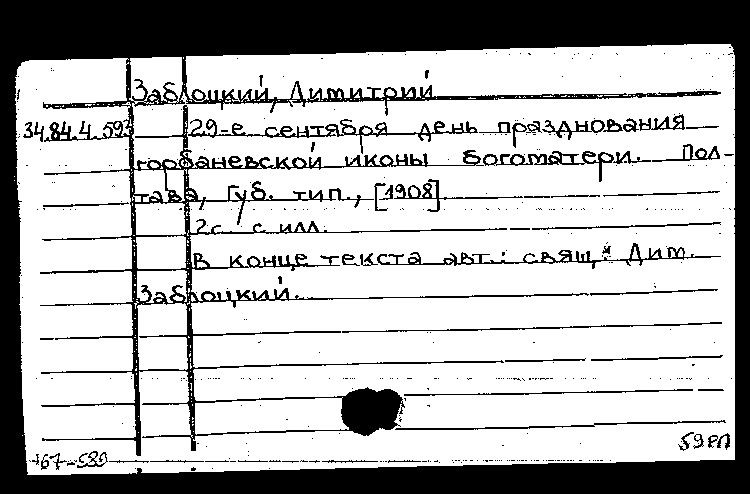 Заблоцкий, Димитрий
34.84.4.593 29-е сентября день празднования
горбаневской иконы богоматери. Пол-
тава, Губ. тип., [1908].
2с. с илл.
В конце текста авт.: свящ. Дим.
Заблоцкий.
59РП
67-589